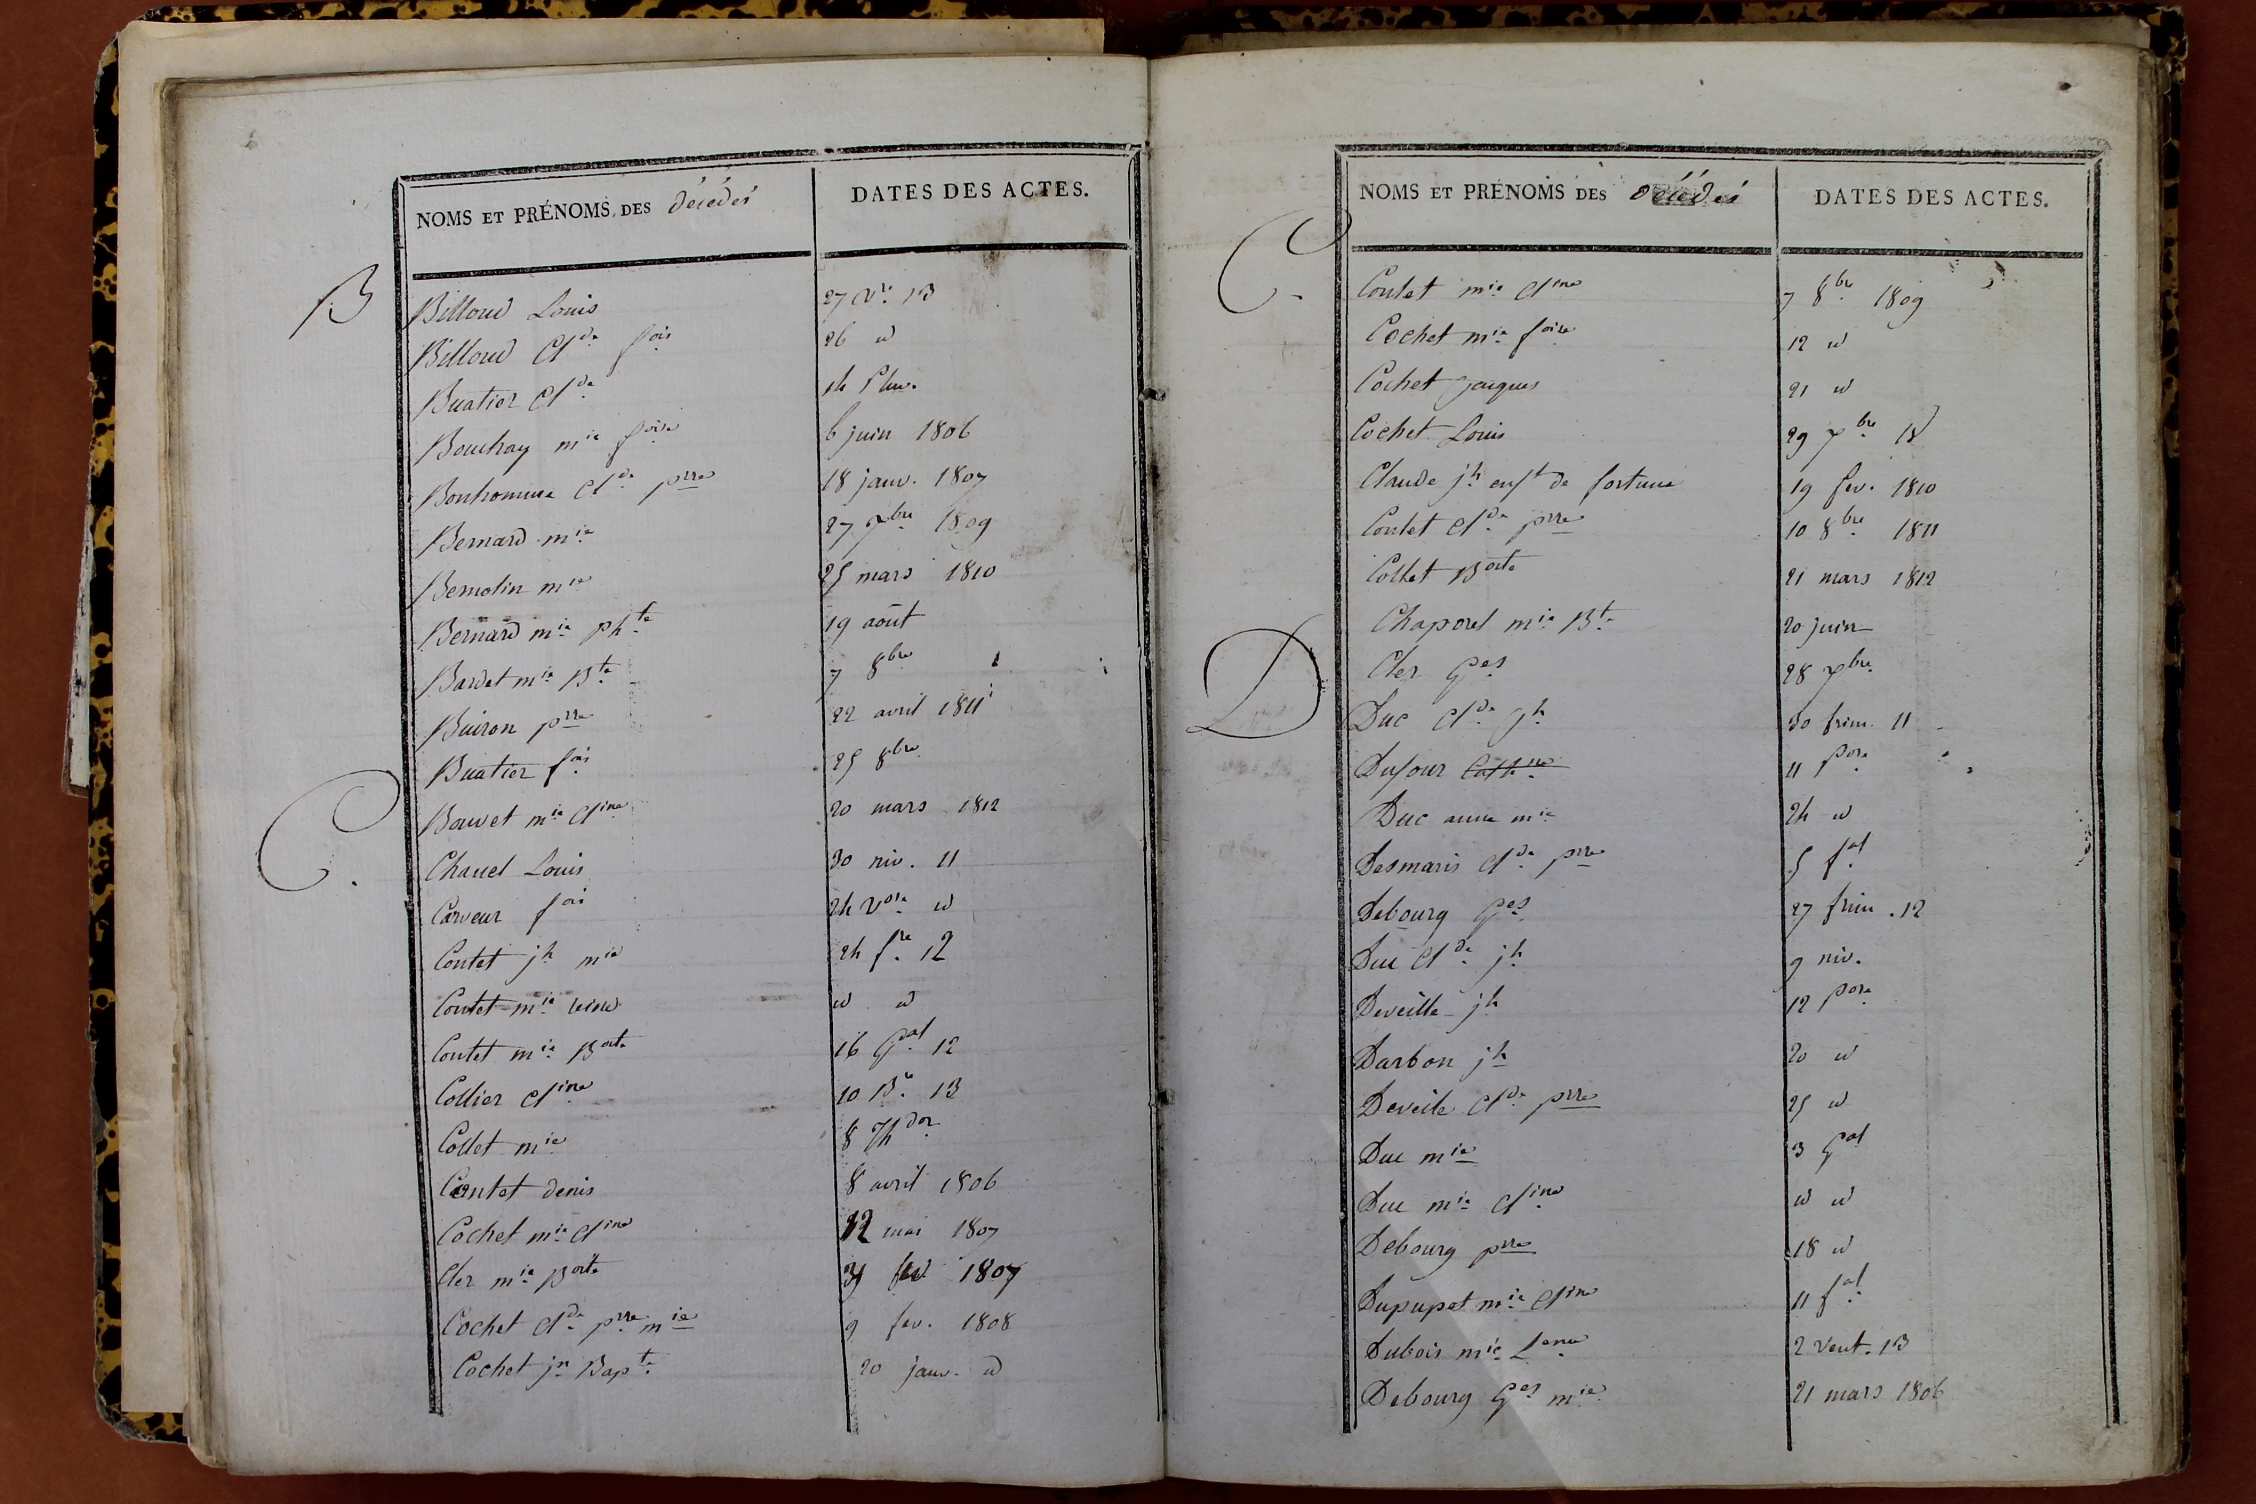 NOMS ET PRÉNOMS DES décédés DATES DES ACTES.
B
Billoud Louis 27 Vre 13
Billoud Clde fois 26 id
Buatier Clde 14 Pluv.
Bouchay mie foise 6 juin 1806
Bonhomme Clde prre 18 janv. 1807
Bernard mie 27 7bre 1809
Bernolin mie 25 mars 1810
Bernard mie phte 19 août
Bardet mie Bte 7 8bre
Buiron prre 22 avril 1811
Buatier fois 25 8bre
Bouvet mie Cline 20 mars 1812
C.
Chanel Louis 30 niv. 11
Carveur fois 24 Vose id
Coutet jh mie 24 fre 12
Coutet mie reine id id
Coutet mie Boite 16 Gal 12
Collier Cline 10 Bre 13
Collet mie 8 Thdor
Coutet denis 8 avril 1806
Cochet mie Cline 12 mai 1807
Cler mie Boite fev 1807
Cochet Clde prre mie 9 fev. 1808
Cochet jn Bapte 20 janv. id
NOMS ET PRÉNOMS DES décédés DATES DES ACTES.
C.
Coutet mie Cline 7 8bre 1809
Cochet mie foise 12 id
Cochet jacques 21 id
Cochet Louis 29 7bre id
Claude jh enft de fortune 19 fev. 1810
Coutet Clde prre 10 8bre 1811
Collet Boite 21 mars 1812
Chaporel mie Bte 20 juin
Cler Ges 28 7bre
D
Duc Clde jh 30 frim. 11
Dufour Cathne 11 pose
Duc anne mie 24 id
Desmaris Clde prre 5 fal
Debourg Ges 27 frim. 12
Duc Clde jh 9 niv.
Deveille jh 12 pose
Darbon jh 20 id
Deveile Clde prre 25 id
Duc mie 3 Gal
Duc mie Cline id id
Debourg prre 18 id
Dupupet mie Cline 11 fal
Dubois mie 2 Vent. 13
Debourg Ges mie 21 mars 1806